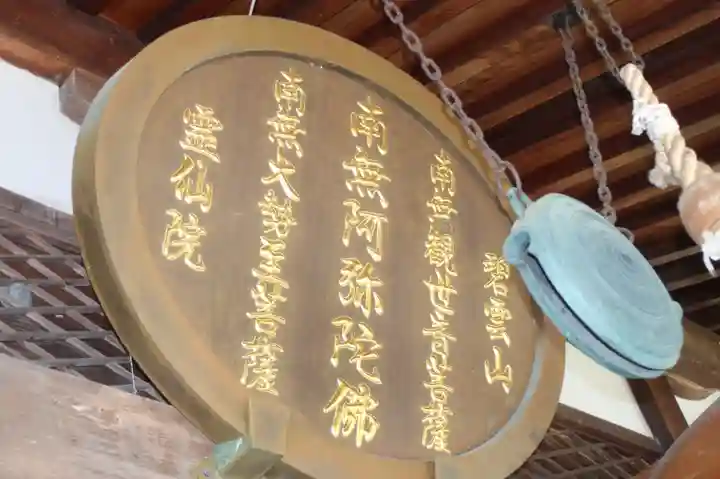 碧雲山
南無觀世音菩薩
南無阿弥陀佛
南無大勢至菩薩
靈仙院